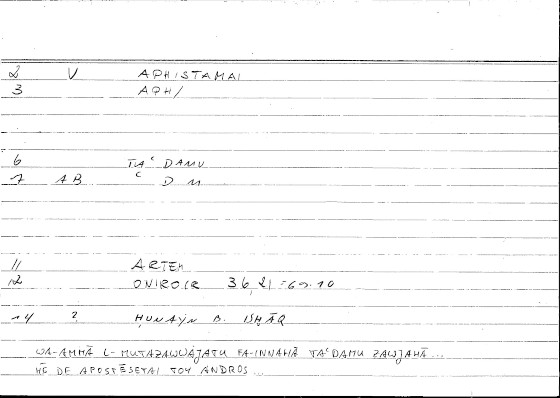 2 V APHISTAMAI
3 APH/
6 TAᶜDAMU
7 AB ᶜ D M
11 ARTEM
12 ONIROCR 36,21 = 69.10
14 ? ḤUNAYN B. ISḤĀQ
WA-AMMĀ L-MUTAZAWWAǦATU FA-INNAHĀ TAᶜDAMU ZAWǦAHĀ...
HĒ DE APOSTĒSETAI TOY ANDROS...